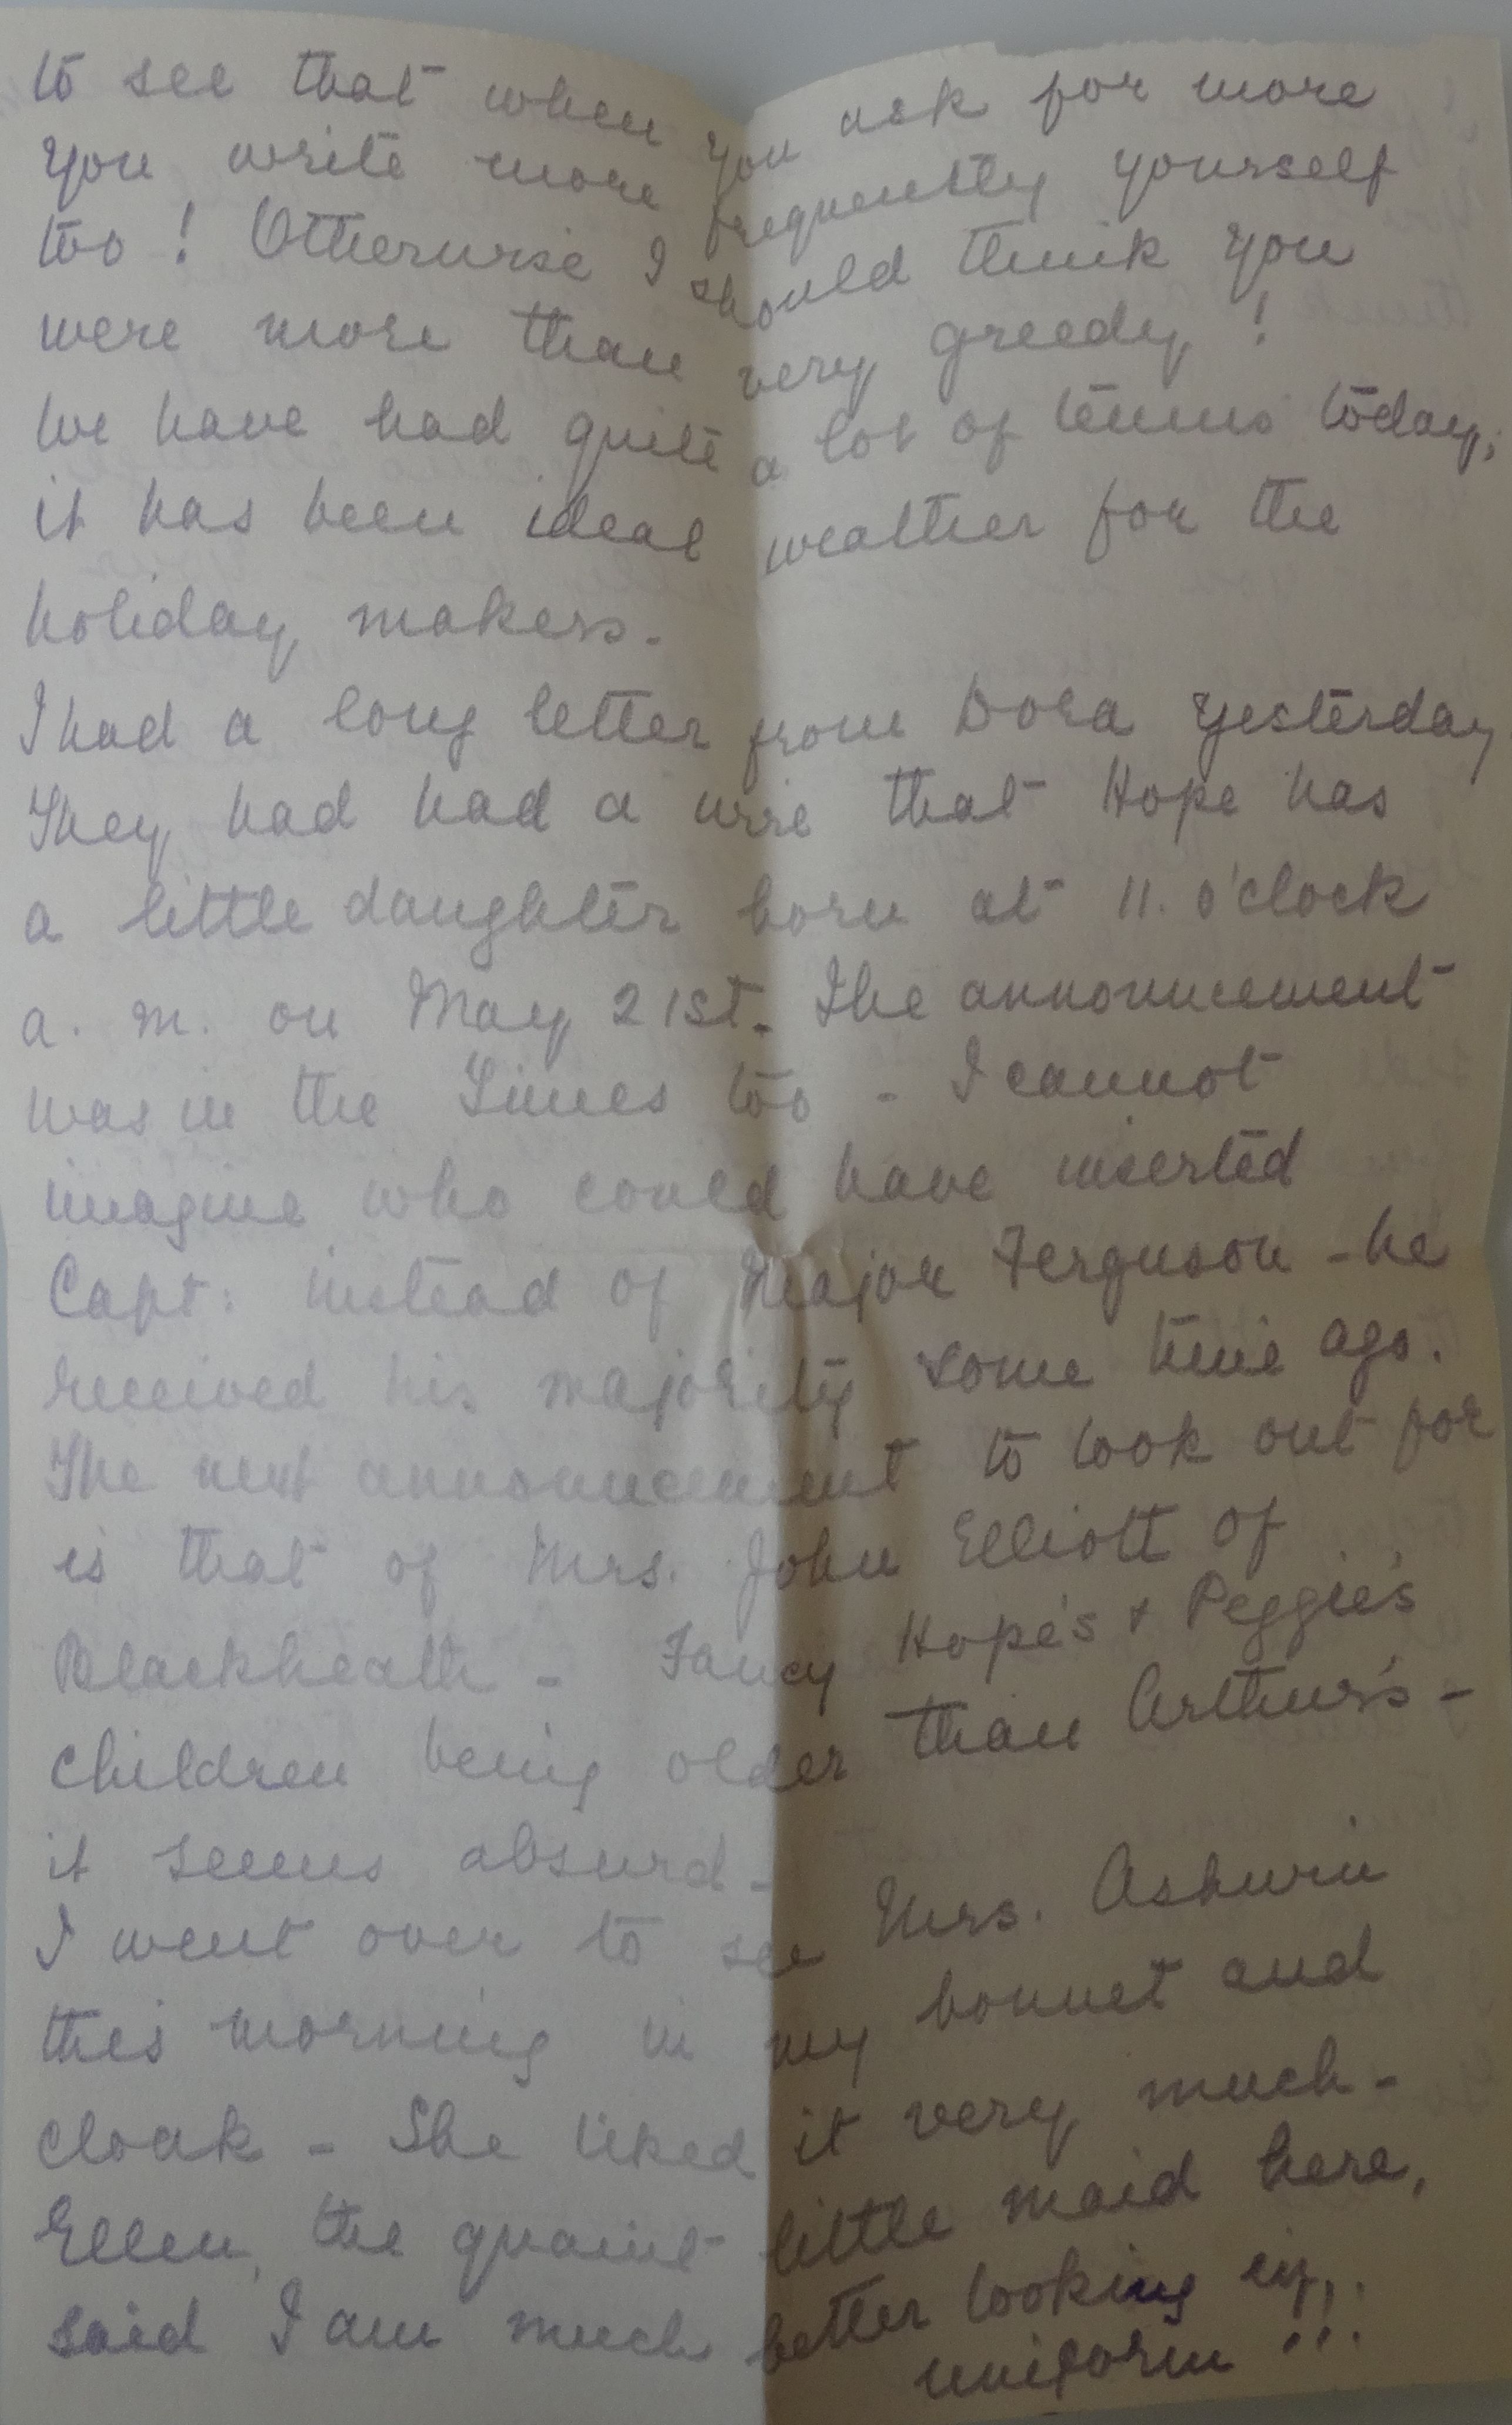 to see that when you ask for more
you write more frequently yourself
too! Otherwise I should think you
were more than very greedy!
We have had quite a lot of tennis today,
it has been ideal weather for the
holiday makers.
I had a long letter from Dora yesterday.
They had had a wire that Hope has
a little daughter born at 11. o'clock
a. m. on May 21st. The announcement
was in the Times too - I cannot
imagine who could have inserted
Capt: instead of Major Ferguson - he
received his majority some time ago.
The next announcement to look out for
is that of Mrs. John Elliott of
Blackheath - Fancy Hope's & Peggie's
children being older than Arthur's -
it seems absurd -
I went over to see Mrs. Ashwin
this morning in my bonnet and
cloak - She liked it very much -
Ellen, the quaint little maid here,
said I am much better looking in
uniform!!!